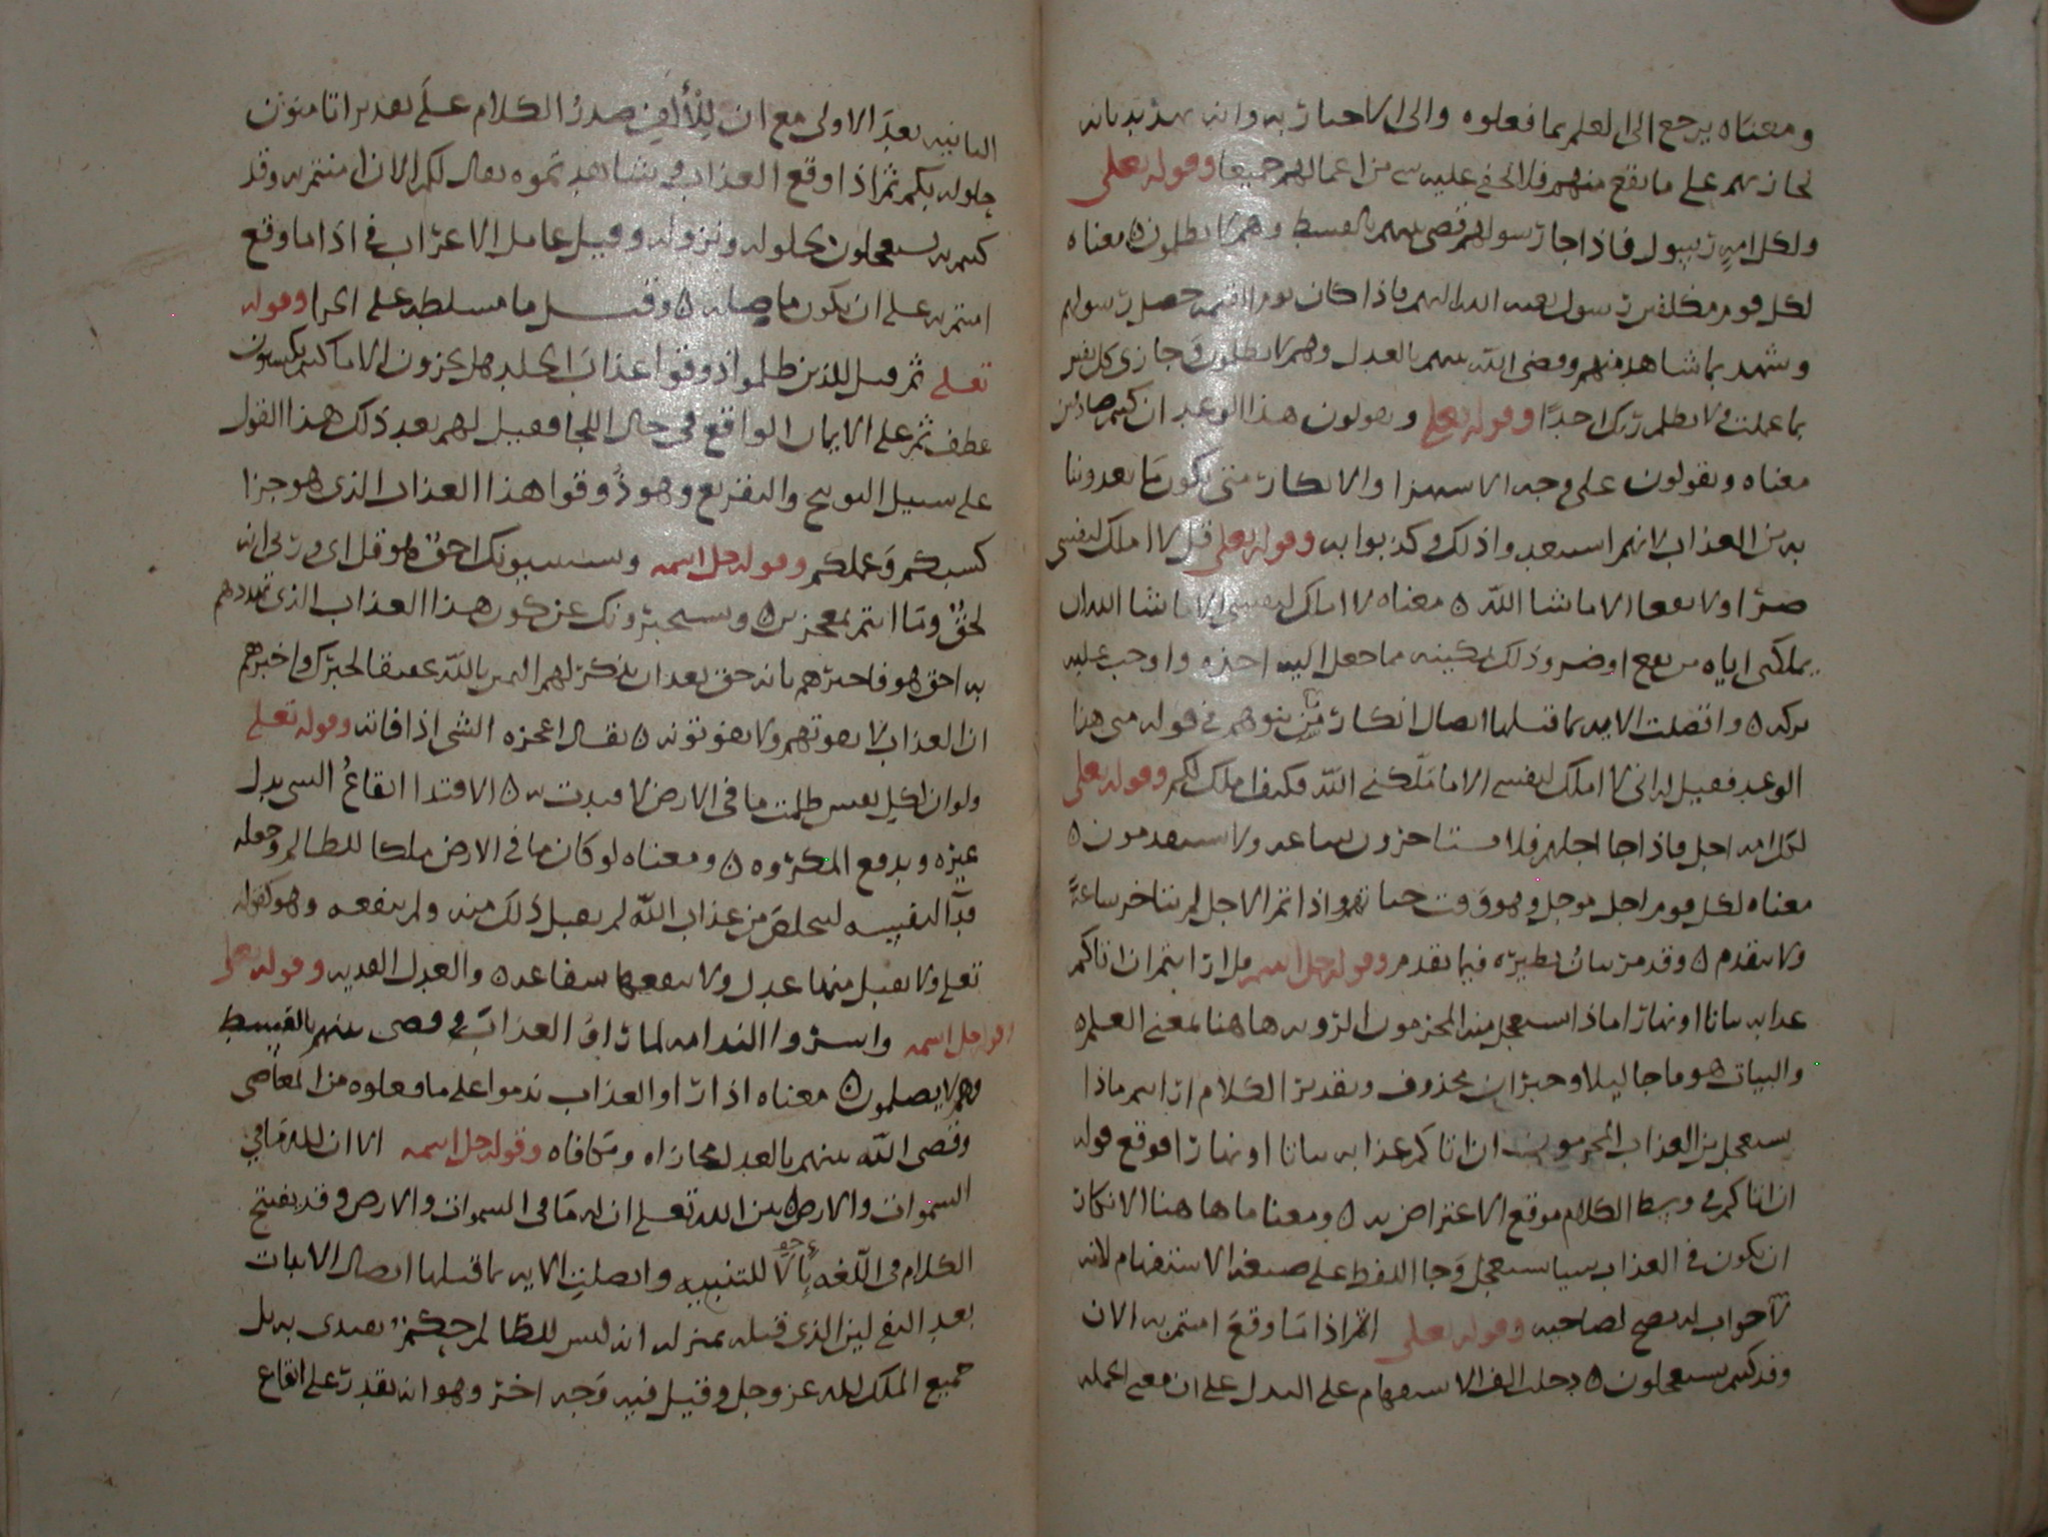 ومعناه يرجع الى العلم بما فعلوه والى الاخبار به وانه تهديد بانه
يجازيهم على ما يقع منهم فلا يخفى عليه شي من اعمالهم جميعا وقوله تعلى
ولكل امةٍ رسول فاذا جا رسولهم قضى بينهم بالقسط وهم لا يظلمون ه معناه
لكل قوم مكلفين رسول بعثه الله اليهم فاذا كان يوم القيمة حصل رسولهم
وشهد بما شاهد منهم وقضى الله بينهم بالعدل وهم لا يظلمون وجازى كل نفس
بما عملت ولا يظلم ربك احدًا وقوله تعلى ويقولون هذا الوعد ان كنتم صادقين
معناه ويقولون على وجه الاستهزا والانكار متى يكون ما تعدوننا
به من العذاب لانهم استبعدوا ذلك وكذبوا به وقوله تعلى قل لا املك لنفسى
ضرّا ولا نفعا الا ما شا الله ه معناه لا املك لنفسى الا ما شا الله ان
يملكنى اياه من نفع او ضر وذلك تمكينه مما جعل اليه اخذه واوجب عليه
تركه ه واتصلت الاية بما قبلها اتصال انكار من يتوهم في قوله متى هذا
الوعد فقيل له انى لا املك لنفسى الا ما ملّكنى الله فكيف املك لكم وقوله تعلى
لكل امة اجل فاذا جا اجلهم فلا يستاخرون ساعة ولا يستقدمون ه
معناه لكل قوم اجل موجل وهو وقت حياتهم واذا تم الاجل لم يتاخر ساعةً
ولا يتقدم ه وقد مرّ بيان نظيره فيما تقدم وقوله جل اسمه قل ارايتم ان اتاكم
عذابه بياتا او نهارًا ماذا يستعجل منه المجرمون الرويه هاهنا بمعنى العلم ه
والبيات هو ما جا ليلا وخبر ان محذوف وتقدير الكلام ارايتم ماذا
يستعجل من العذاب المجرمون ان اتاكم عذابه بياتا او نهارًا فوقع قوله
ان اتاكم في وسط الكلام موقع الاعتراض به ه ومعنا ما هاهنا الانكار
ان يكون في العذاب شيا يستعجل وجا اللفظ على صيغة الاستفهام لانه
لا جواب له يصح لصاحبه وقوله تعلى اثم اذا ما وقع امنتم به الان
وقد كنتم به تستعجلون ه دخلت الف الاستفهام على البدل على ان معنى الجملة
الثانية بعد الاولى مع ان للالف صدرُ الكلام على تقدير اتامنون
بحلوله بكم ثم اذا وقع العذاب وشاهدتموه يقال لكم الان امنتم به وقد
كنتم به تستعجلون بحلوله ونزوله وقيل عامل الاعراب في اذا ما وقع
امنتم به على ان يكون ما صلة ه وقيل ما مسلطه على الجزا وقوله
تعلى ثم قيل للذين ظلموا ذوقوا عذاب الخلد هل تجزون الا ما كنتم تكسبون
عطف ثم على الايمان الواقع في حال اللجا فقيل لهم بعد ذلك هذا القول
على سبيل التوبيخ والتقريع وهو ذُوقوا هذا العذاب الذى هو جزا
كسبكم وعملكم وقوله جل اسمه ويستنبيونك احق هو قل اى وربى انه
لحقٌ وما انتم بمعجزين ه ويستخبرونك عن كون هذا العذاب الذى تهددهم
به احق هو فاخبرهم بانه حق بعد ان يذكر لهم اليمين بالله تحقيقا لخبرك واخبرهم
ان العذاب لا يفوتهم ولا يفوتونه ه يقال اعجزه الشى اذا فاته وقوله تعلى
ولو ان لكل نفس ظلمت ما في الارض لافتدت به ه الافتدا ايقاعُ الشى بدل
غيره وبدفع المكروه ه ومعناه لو كان ما في الارض ملكا للظالم وجعله
فدآ لنفسه ليتخلص من عذاب الله لم يقبل ذلك منه ولم ينفعه وهو كقوله
تعلى ولا يقبل منها عدل ولا تنفعها شفاعة ه والعدل الفديه وقوله تعلى
وقوله جل اسمه واسرّوا الندامه لما راوُ العذاب وقضى بينهم بالقسط
وهم لا يظلمون ه معناه اذا راوا العذاب ندموا على ما فعلوه من المعاصى
وقضى الله بينهم بالعدل مجازاه ومكافاه وقوله جل اسمه الا ان لله ما في
السموات والارض ه بين الله تعلى ان له ما فى السموات والارض وقد يفتتح
الكلام فى اللغه بألا للتنبيه واتصلت الايه بما قبلها اتصال الاثبات
بعد النفى لين الذى قبله بمنزلة انه ليس للظالم حكمٌ يفتدى به بل
جميع الملك لله عز وجل وقيل فيه وجه اخر وهو انه يقدر على ايقاع